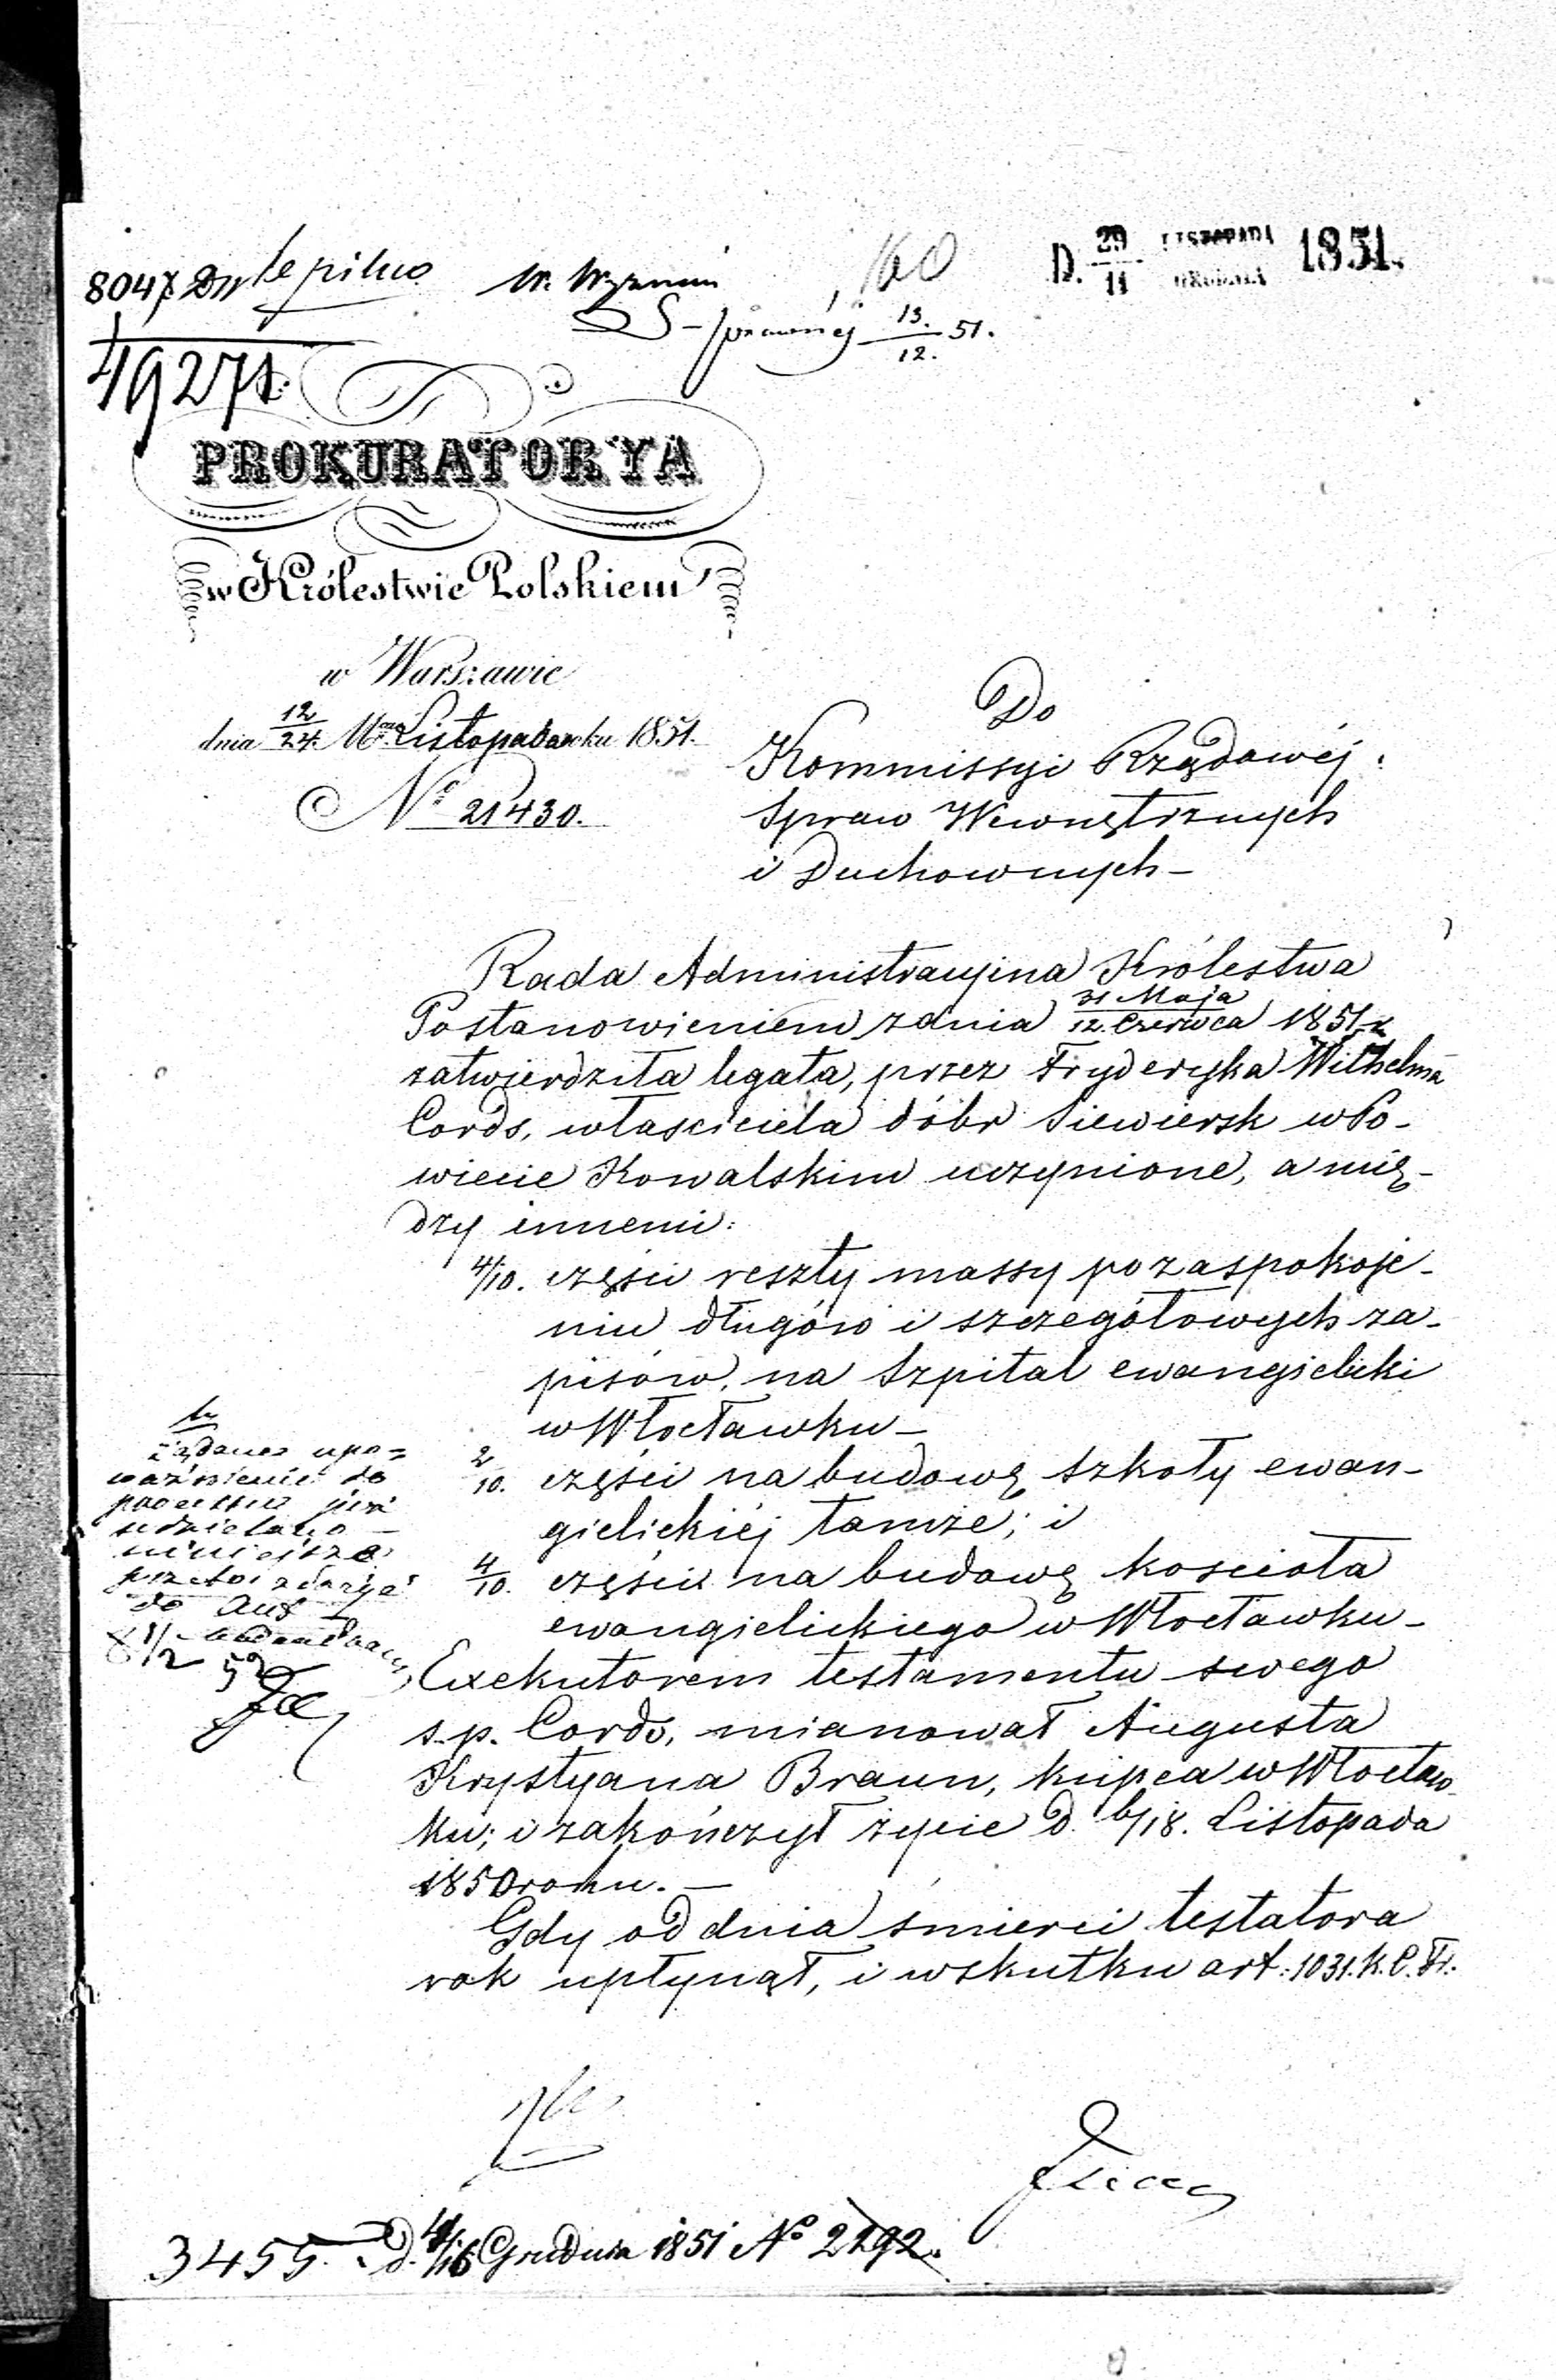 8047
160
D. 29/11 LISTOPADA GRUDNIA 1851.
13./12. 51.
49271.
PROKURATORYA
w Królestwie Polskiem
w Warszawie
dnia 12/24. Mca Listopada roku 1851.
No 21430.
Do
Kommissyi Rządowéj
Spraw Wewnętrznych
i Duchownych –
Rada Administracyjna Królestwa
Postanowieniem z dnia 31 Maja/12. Czerwca 1851 r.
zatwierdziła legata, przez Fryderyka Wilhelma
Cords, właściciela dóbr Siewiersk w Po-
wiecie Kowalskim uczynione, a mię-
dzy innemi:
4/10. części reszty massy po zaspokoje-
niu długów i szczegółowych za-
pisów, na Szpital ewangielicki
w Włocławku –
2/10. części na budowę szkoły ewan-
gielickiéj tamże; i
4/10. części na budowę kościoła
ewangielickiego w Włocławku –
żądanes upo=
ważnienie do
już
udzielano –
niniejsze
do Akt
8/2 52
Exekutorem testamentu swego
s.p. Cords, mianował Augusta
Krystyana Braun, kupca w Włocław-
ku; i zakończył życie d. 6/18. Listopada
1850 roku. –
Gdy od dnia śmierci testatora
rok upłynął, i wskutku art: 1031. K. C. Fr.
3455. d. 4/16 Grudnia 1851 No 2292.